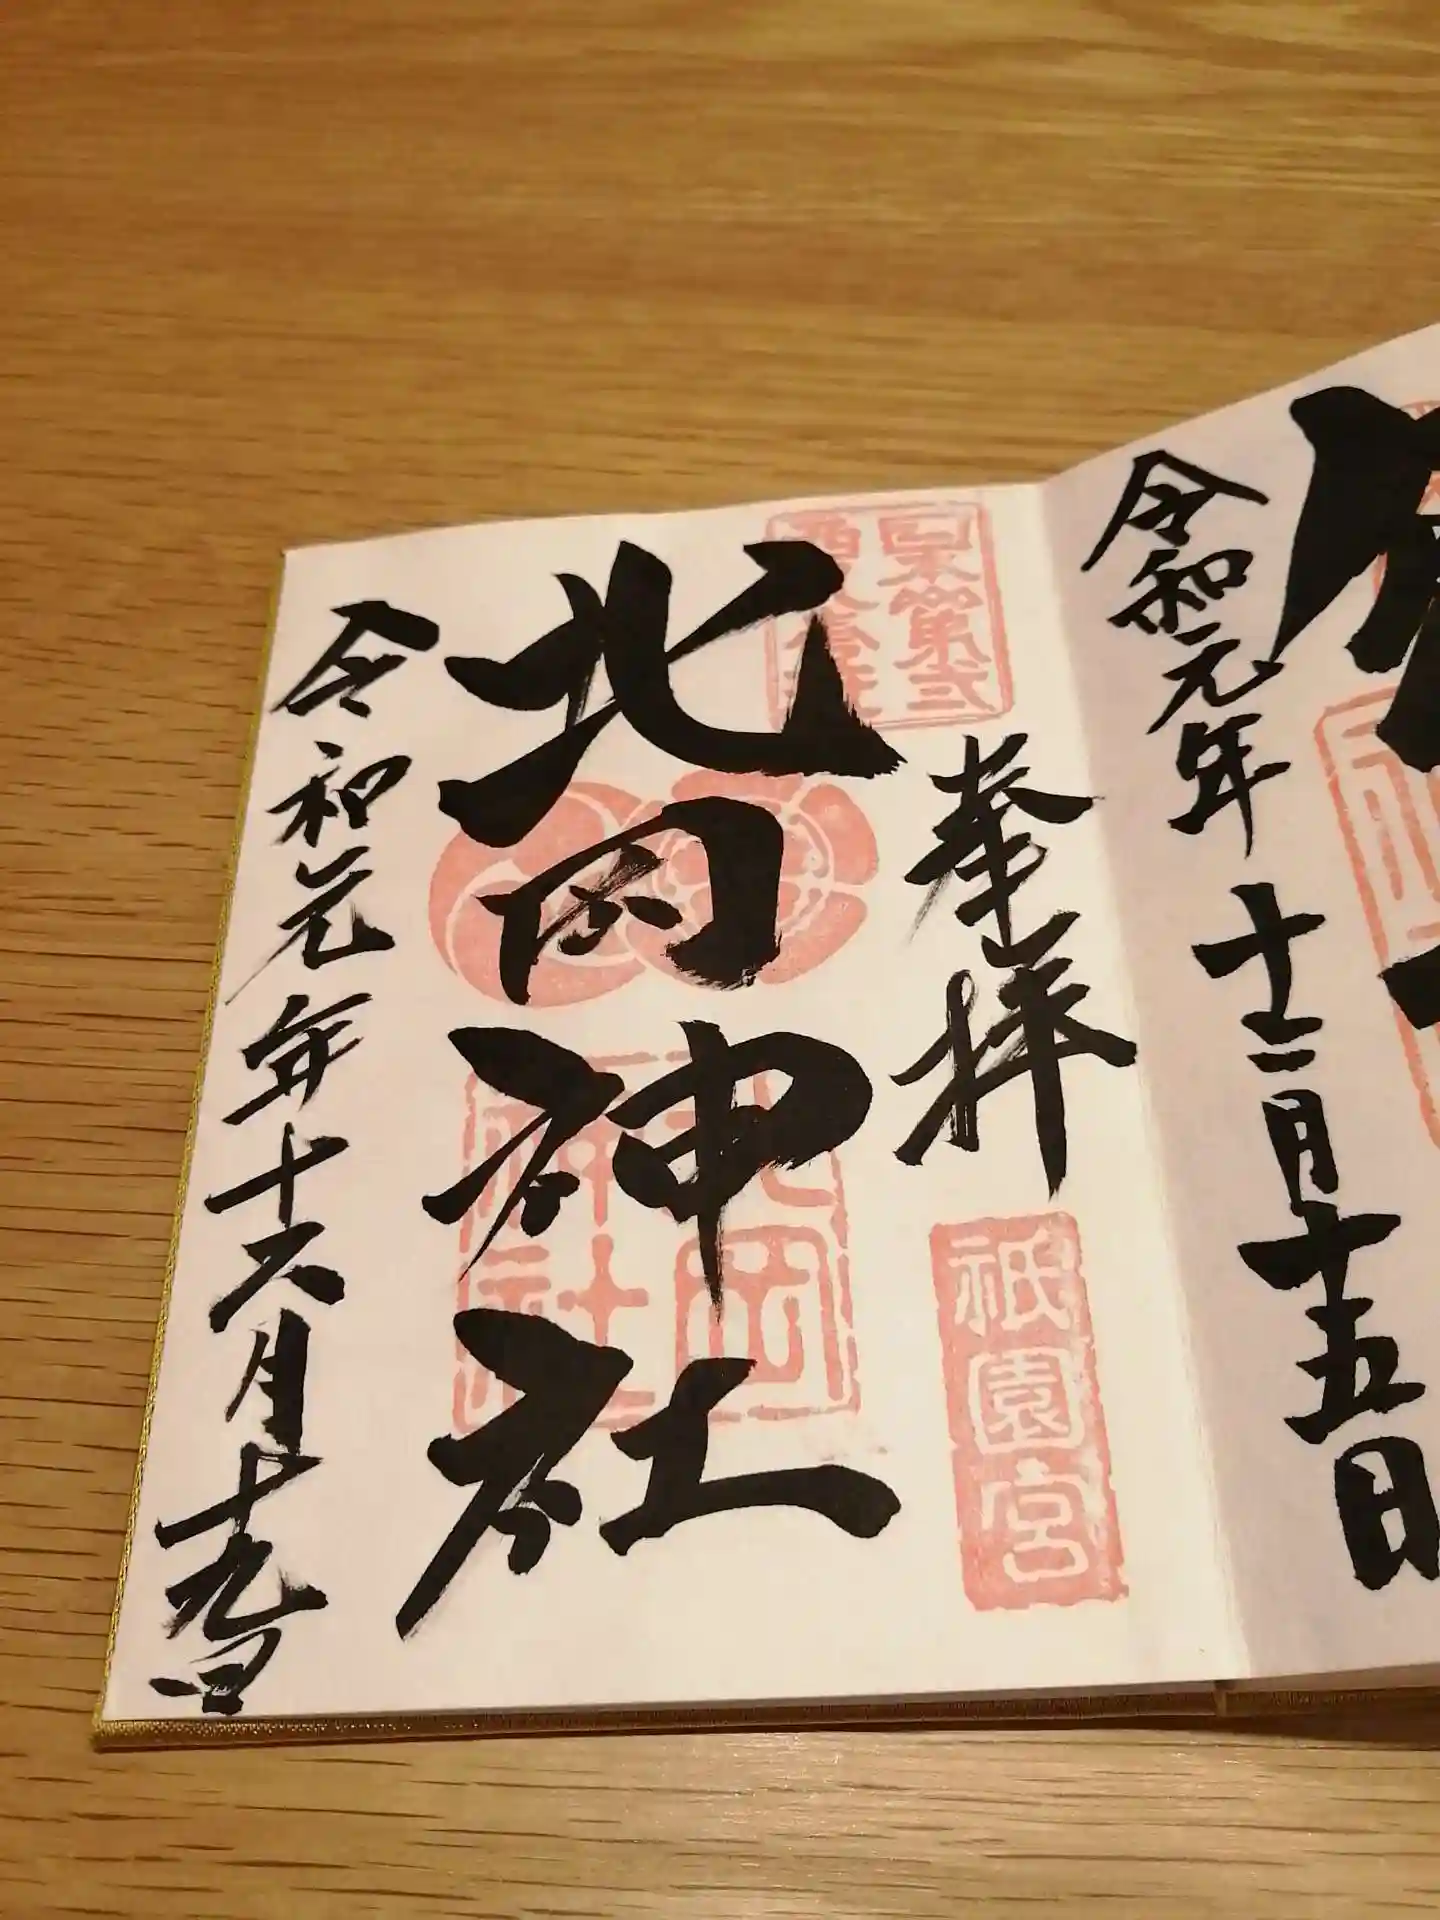 令和元年十二月十五日
奉拝
祇園宮
北岡神社
北岡
神社
令和元年十二月十九日